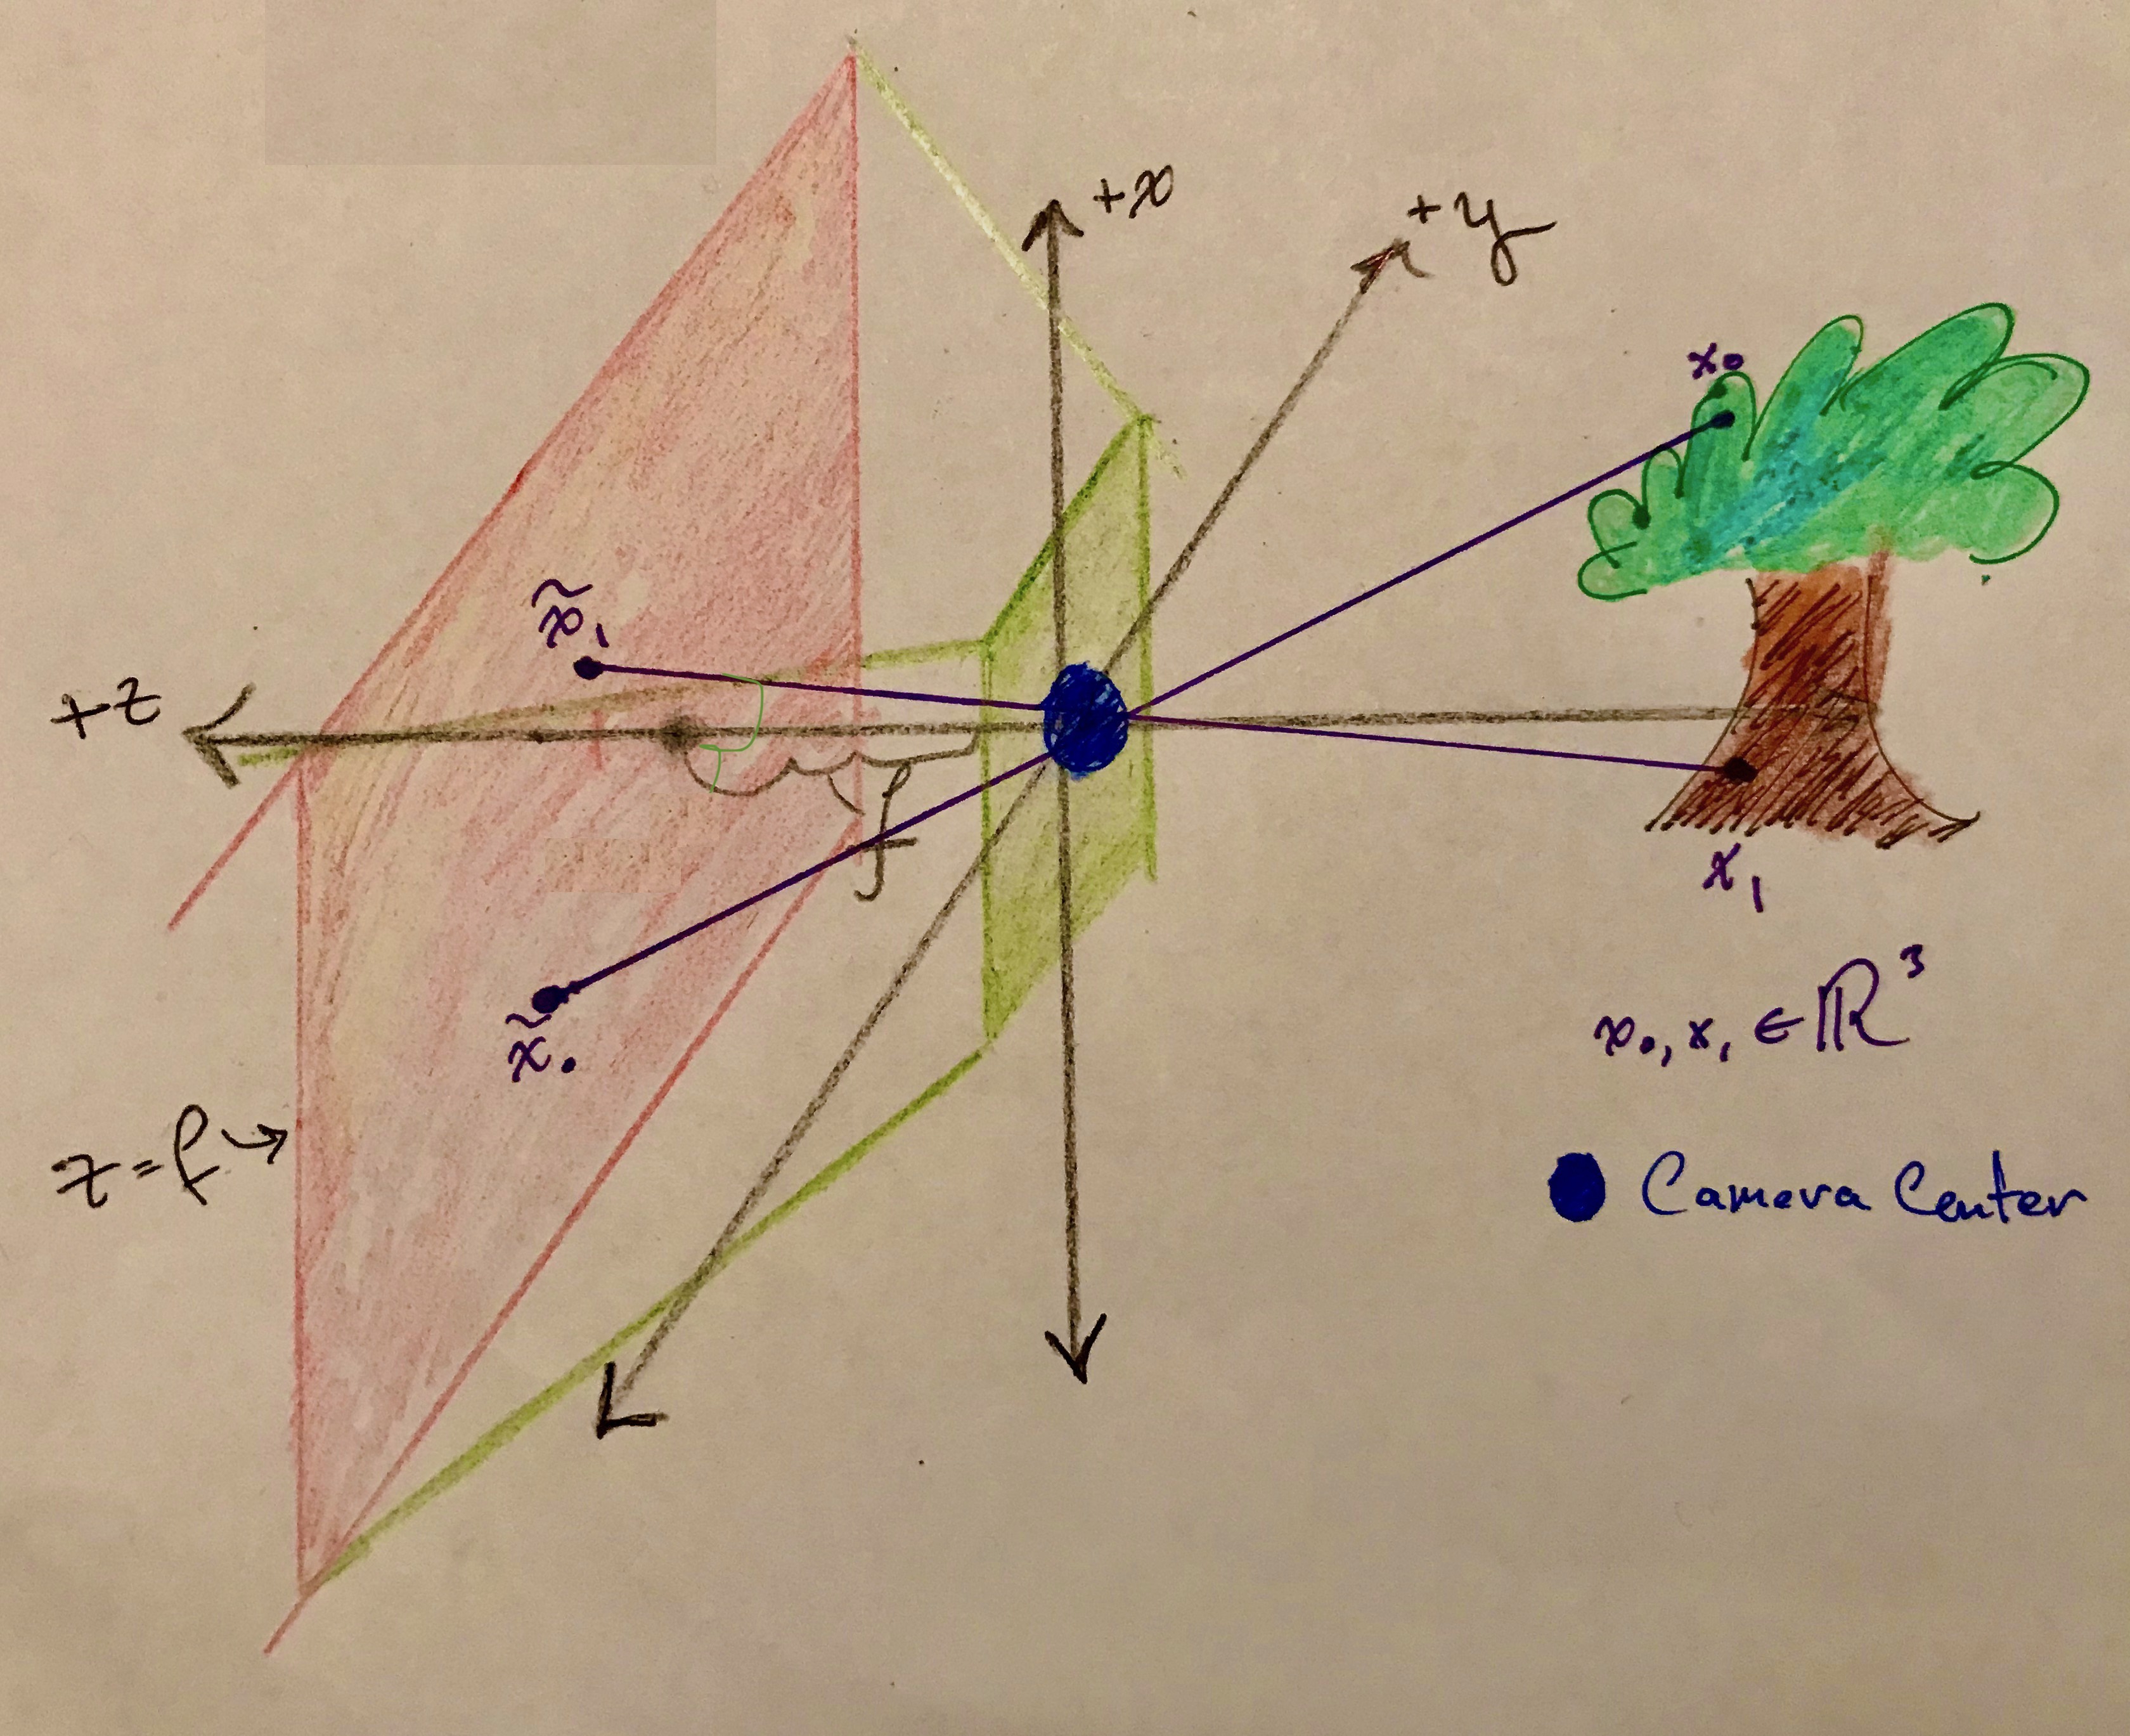 +x
+y
x₀
x̃₁
+z
f
x₁
x̃₀
x₀, x₁ ∈ ℝ³
z=f→
Camera Center